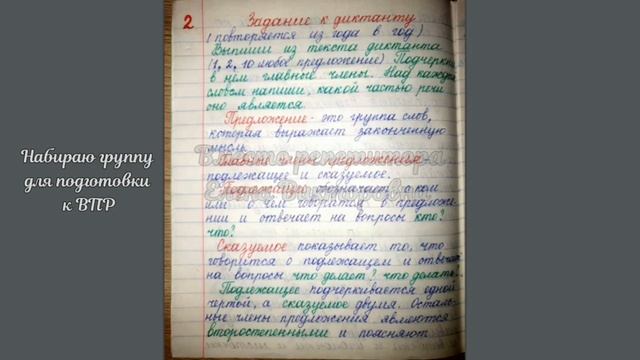 2
Задание к диктанту
(повторяется из года в год)
Выпиши из текста диктанта
(1, 2, 10 любое предложение) Подчеркни
в нем главные члены. Над каждым
словом напиши, какой частью речи
оно является.
Предложение - это группа слов,
которая выражает законченную
мысль.
Главные члены предложения
подлежащее и сказуемое.
Подлежащее обозначает о ком
или о чем говорится в предложе-
нии и отвечает на вопросы кто?
что?
Сказуемое показывает то, что
говорится о подлежащем и отвечает
на вопросы что делает? что делать?
Подлежащее подчеркивается одной
чертой, а сказуемое двумя. Осталь-
ные члены предложения являются
второстепенными и поясняют
Вместо репетитора
Набираю группу
для подготовки
к ВПР